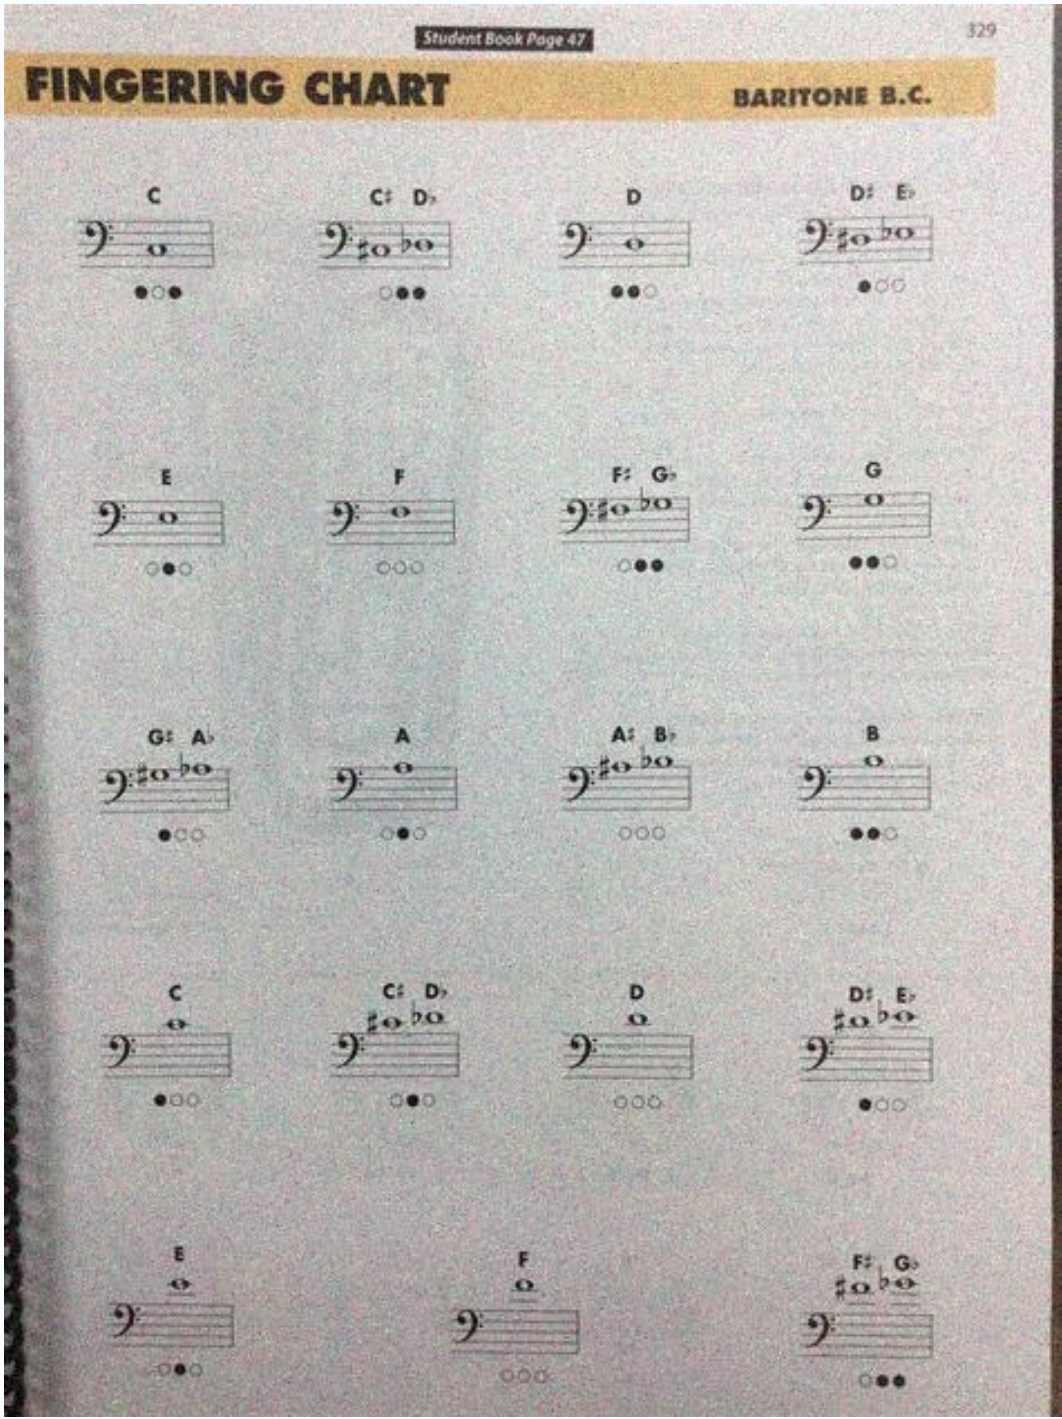 329
Student Book Page 47
FINGERING CHART BARITONE B.C.
C C♯ D♭ D D♯ E♭
E F F♯ G♭ G
G♯ A♭ A A♯ B♭ B
C C♯ D♭ D D♯ E♭
E F F♯ G♭